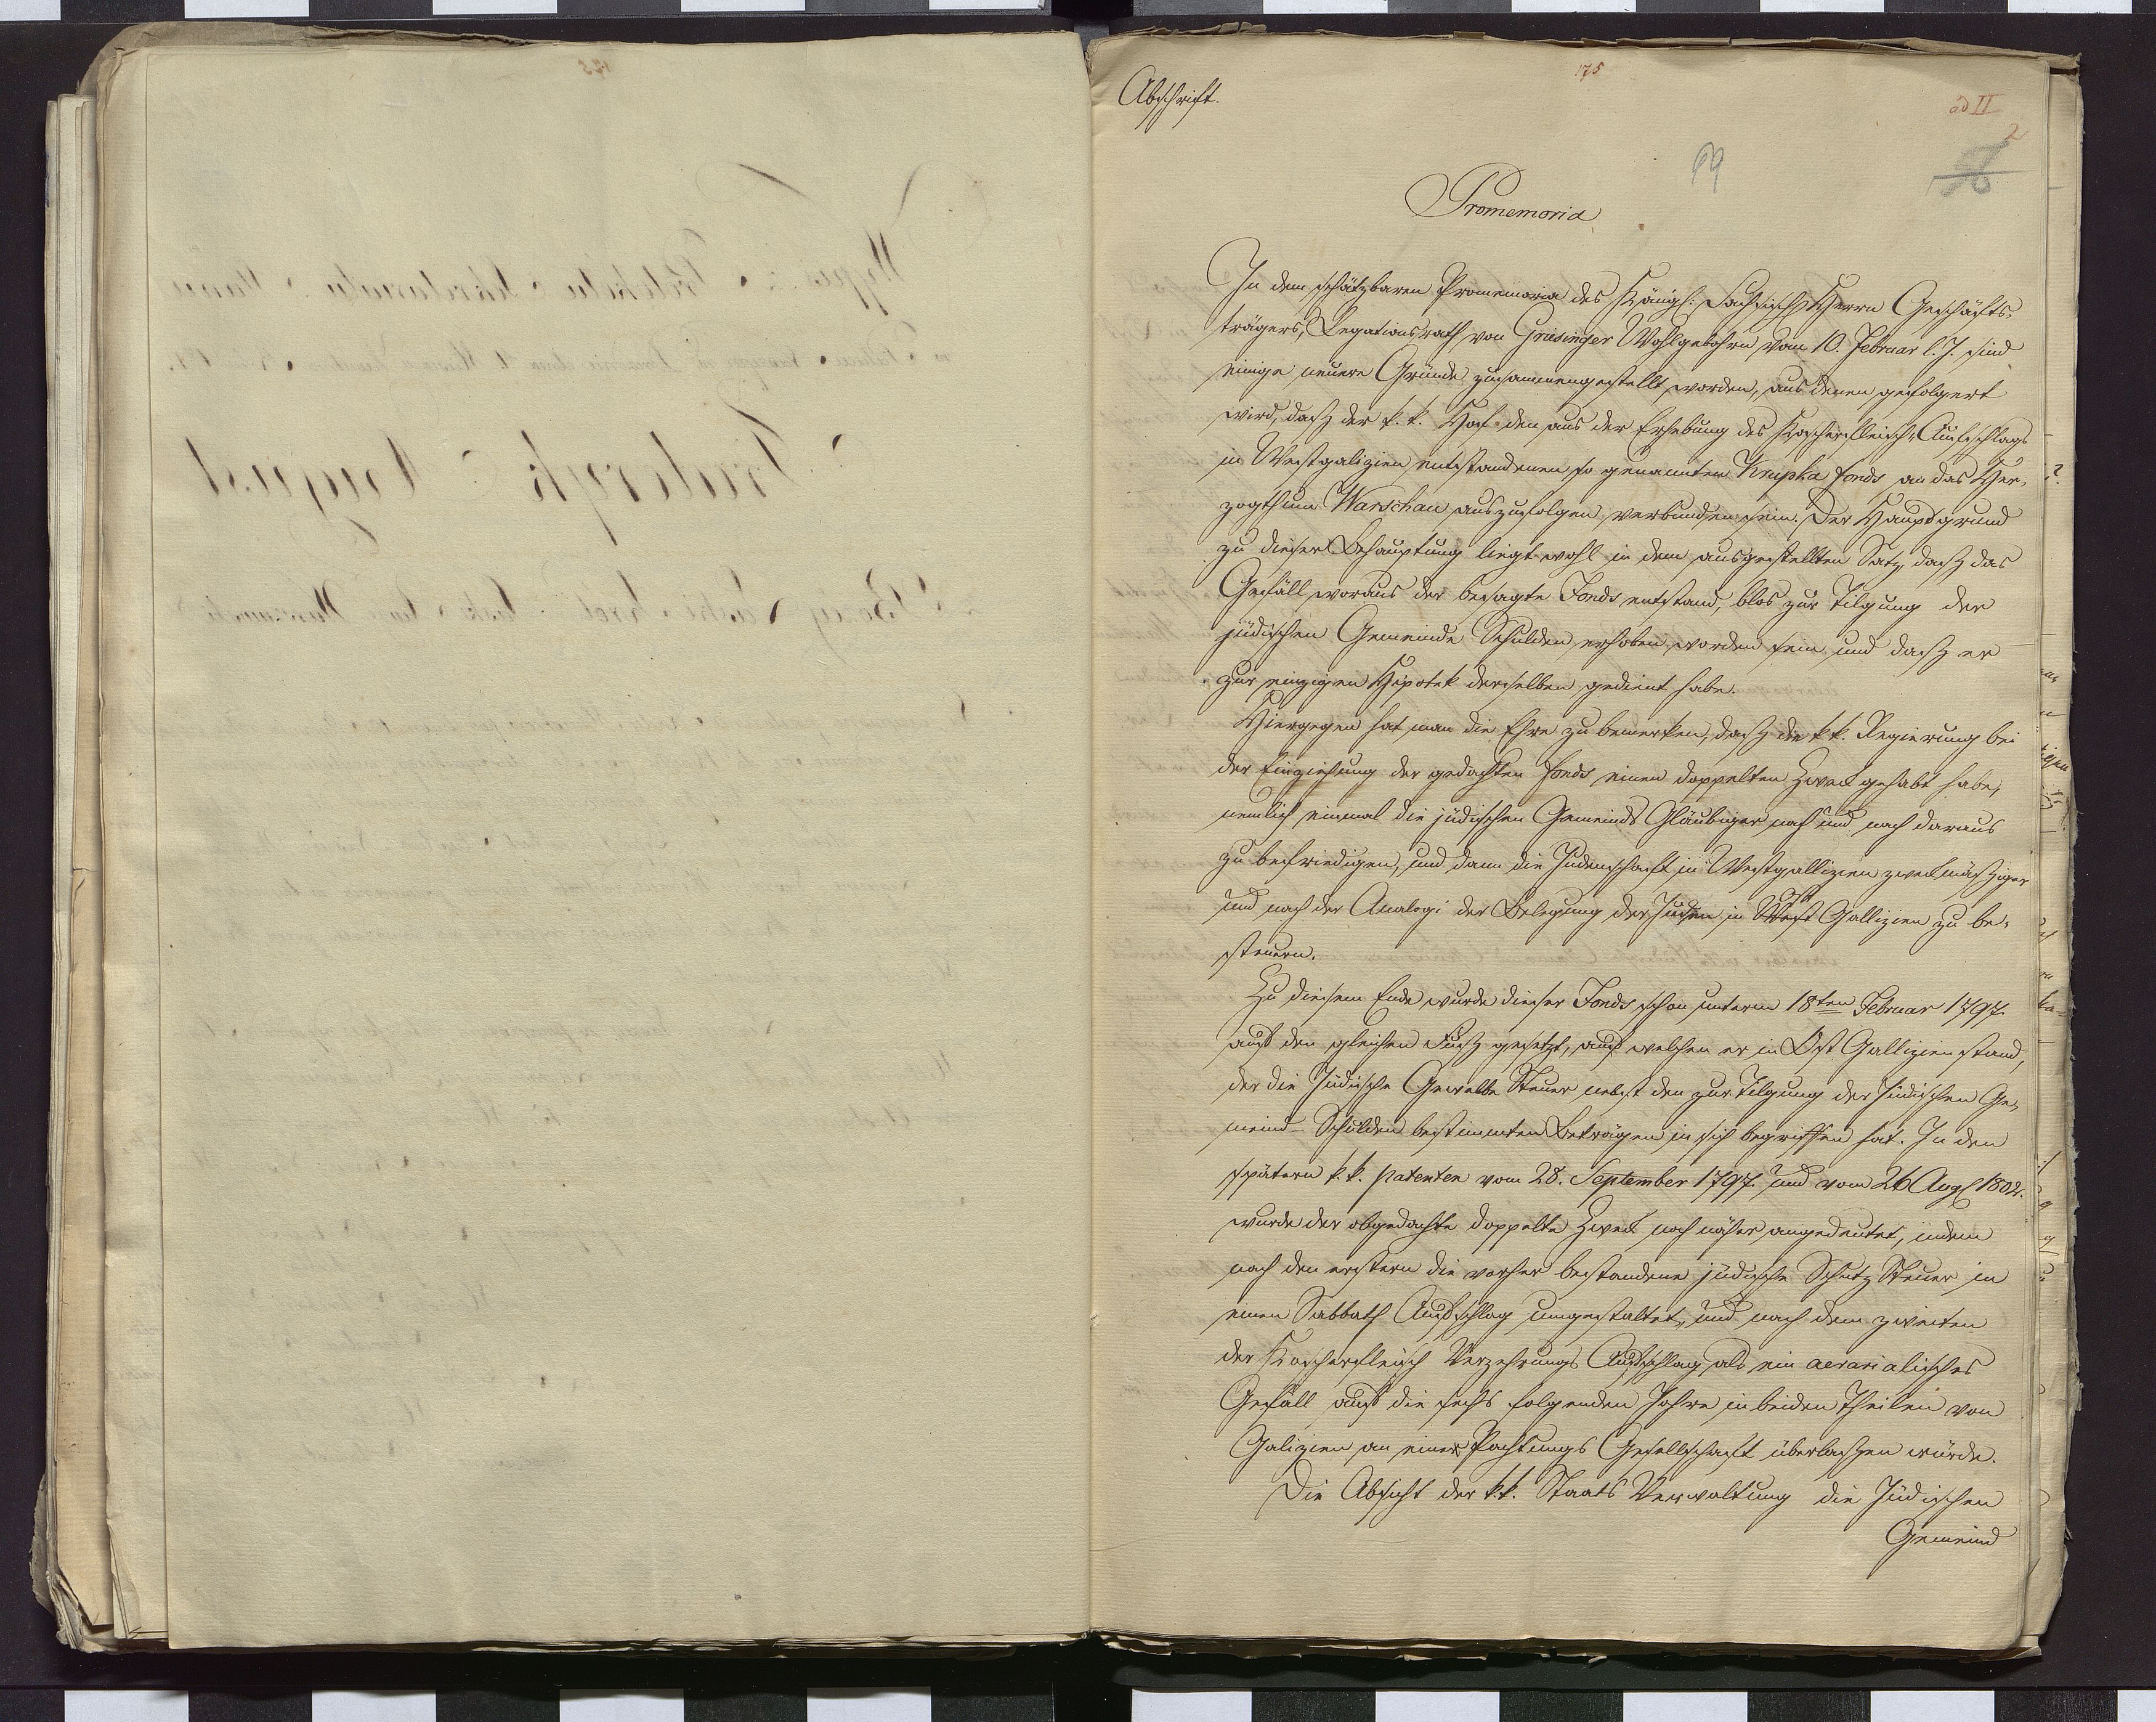 175
Abschrift.
ad II
2
69
Promemoria
In dem schätzbaren Promemoria des Königl: Sächsisch Herrn Geschäfts-
trägers, Legationsrath von Griesinger Wohlgebohrn vom 10. Februar l. J. sind
einige neuere Gründe zusammengestellt worden, aus denen gefolgert
wird, daß der k. k. Hof den aus der Erhebung des Koscherfleisch-Aufschlags
in Westgalizien entstandenen so genannten Krupka fonds an das Her-
zogthum Warschau auszufolgen verbunden sein. Der Hauptgrund
zu dieser Behauptung liegt wohl in dem aufgestellten Satz, daß das
Gefäll woraus der besagte Fonds entstand, blos zur Tilgung der
jüdischen Gemeinde Schulden erhoben worden sein und daß er
zur einzigen Hipotek derselben gedient habe.
Hiergegen hat man die Ehre zu bemerken, daß die k. k. Regierung bei
der Einziehung der gedachten fonds einen doppelten Zweck gehabt habe,
nemlich einmal die jüdischen Gemeinds Gläubiger nach und nach daraus
zu befriedigen, und dann die Judenschaft in Westgallizien zweckmäßiger
und nach der Analogi der Belegung der Juden in Ost Gallizien zu be-
steuern.
Zu diesem Ende wurde dieser Fonds schon unterm 18ten Februar 1797.
auf den gleichen Fuß gesetzt, auf welchen er in Ost Gallizien stand,
der die Jüdische Gewölbe Steuer nebst den zur Tilgung der Jüdischen Ge-
meind-Schulden bestimmten Beträgen in sich begriffen hat. In den
spätern k. k. patenten vom 28. September 1797. und vom 26 Augl 1802.
wurde der obgedachte doppelte Zweck noch näher angedeutet, indem
nach den erstern die vorher bestandene jüdische Schutz Steuer in
einen Sabbath Aufschlag umgestaltet, und nach dem zweiten
der Koscherfleisch Verzehrungs Aufschlag als ein aerarialisches
Gefäll auf die sechs folgenden Jahre in beiden Theilen von
Galizien an einer Pachtungs Gesellschaft überlaßen würde.
Die Absicht der k. k. Staats Verwaltung die Jüdischen
Gemeind